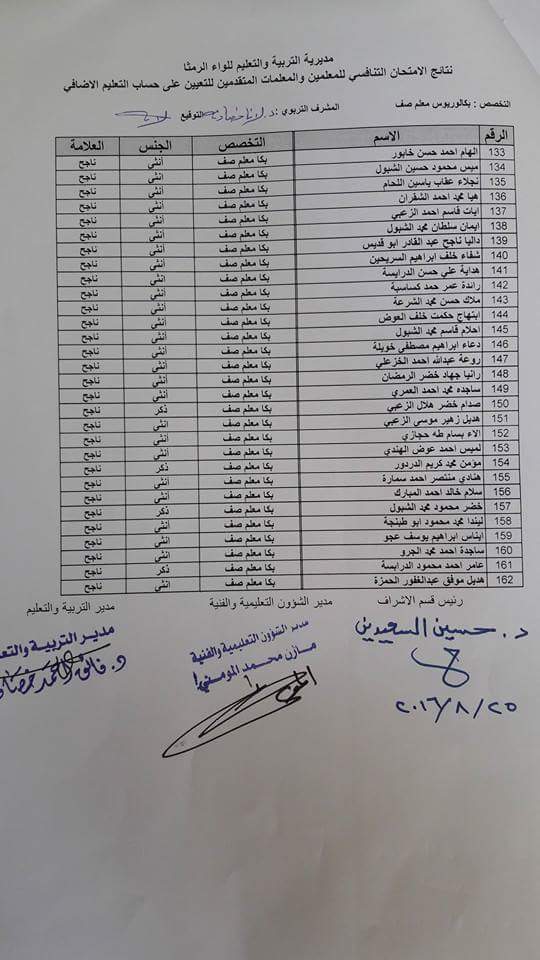 مديرية التربية والتعليم للواء الرمثا
نتائج الامتحان التنافسي للمعلمين والمعلمات المتقدمين للتعيين على حساب التعليم الاضافي
التخصص : بكالوريوس معلم صف المشرف التربوي : د. التوقيع
الرقم الاسم التخصص الجنس العلامة
133 الهام احمد حسن خابور بكا معلم صف أنثى ناجح
134 ميس محمود حسين الشبول بكا معلم صف أنثى ناجح
135 نجلاء عقاب ياسين اللحام بكا معلم صف أنثى ناجح
136 هيا محمد احمد الشقران بكا معلم صف أنثى ناجح
137 آيات قاسم احمد الزعبي بكا معلم صف أنثى ناجح
138 ايمان سلطان محمد الشبول بكا معلم صف أنثى ناجح
139 داليا ناجح عبد القادر ابو قديس بكا معلم صف أنثى ناجح
140 شفاء خلف ابراهيم السريحين بكا معلم صف أنثى ناجح
141 هداية علي حسن الدرايسة بكا معلم صف أنثى ناجح
142 رائدة عمر حمد كساسبة بكا معلم صف أنثى ناجح
143 ملاك حسن محمد الشرعة بكا معلم صف أنثى ناجح
144 ابتهاج حكمت خلف العوض بكا معلم صف أنثى ناجح
145 احلام قاسم محمد الشبول بكا معلم صف أنثى ناجح
146 دعاء ابراهيم مصطفى خويلة بكا معلم صف أنثى ناجح
147 روعة عبدالله احمد الخزعلي بكا معلم صف أنثى ناجح
148 رانيا جهاد خضر الرمضان بكا معلم صف أنثى ناجح
149 ساجده محمد احمد العمري بكا معلم صف أنثى ناجح
150 صدام خضر هلال الزعبي بكا معلم صف ذكر ناجح
151 هديل زهير موسى الزعبي بكا معلم صف انثى ناجح
152 الاء بسام طه حجازي بكا معلم صف أنثى ناجح
153 لميس احمد عوض الهندي بكا معلم صف أنثى ناجح
154 مؤمن محمد كريم الدردور بكا معلم صف ذكر ناجح
155 هنادي منتصر احمد سمارة بكا معلم صف أنثى ناجح
156 سلام خالد احمد المبارك بكا معلم صف أنثى ناجح
157 خضر محمود محمد الشبول بكا معلم صف ذكر ناجح
158 ليندا محمد محمود ابو طبنجة بكا معلم صف أنثى ناجح
159 ايناس ابراهيم يوسف عجو بكا معلم صف انثى ناجح
160 ساجدة احمد محمد الجرو بكا معلم صف أنثى ناجح
161 عامر احمد محمود الدرايسة بكا معلم صف ذكر ناجح
162 هديل موفق عبدالغفور الحمزة بكا معلم صف انثى ناجح
رئيس قسم الاشراف مدير الشؤون التعليمية والفنية مدير التربية والتعليم
د. حسين السعيدين
مدير الشؤون التعليمية والفنية
مازن محمد المومني
مدير التربية والتعليم
٢٠١٦/٨/٢٥